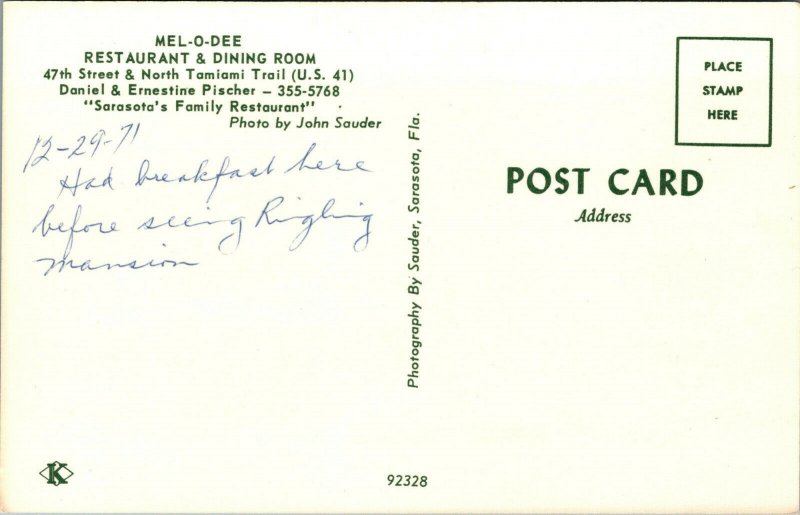 MEL-O-DEE
RESTAURANT & DINING ROOM
47th Street & North Tamiami Trail (U.S. 41)
Daniel & Ernestine Pischer — 355-5768
"Sarasota's Family Restaurant"
Photo by John Sauder
12-29-71
Had breakfast here
before seeing Ringling
mansion
Photography By Sauder, Sarasota, Fla.
PLACE
STAMP
HERE
POST CARD
Address
K
92328